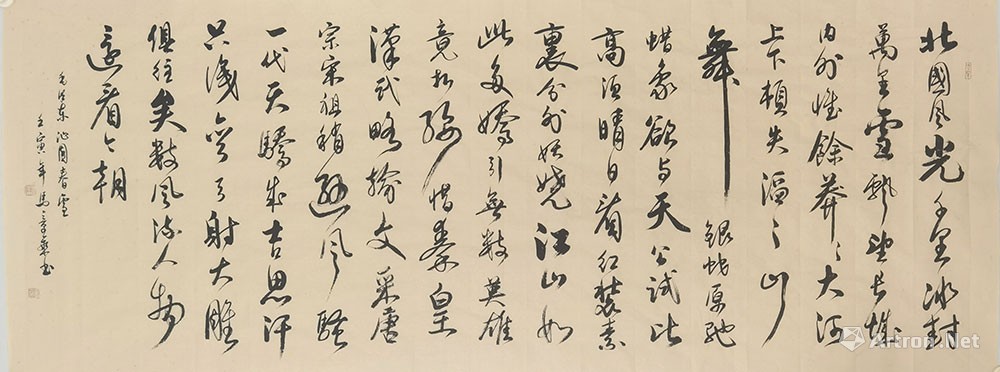 北國風光千里冰封
萬里雪飄望長城
内外惟餘莽々大河
上下頓失滔々山
舞銀蛇原馳
蜡象欲与天公試比
高須晴日看红裝素
裹分外妖嬈江山如
此多嬌引無數英雄
竞折腰惜秦皇
漢武略輸文采唐
宗宋祖稍遜風騷
一代天驕成吉思汗
只識彎弓射大雕
俱往矣數風流人物
還看今朝
毛泽东沁园春雪
壬寅年馬章书
Artron.Net